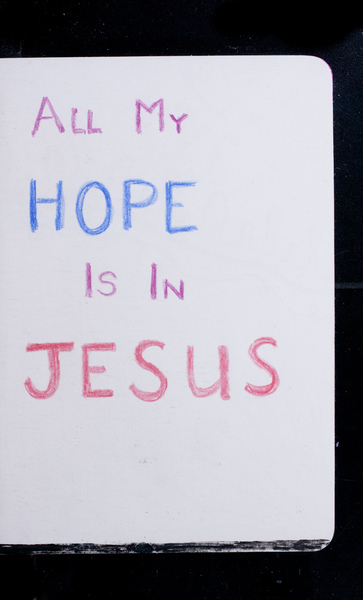 All My
HOPE
Is In
JESUS